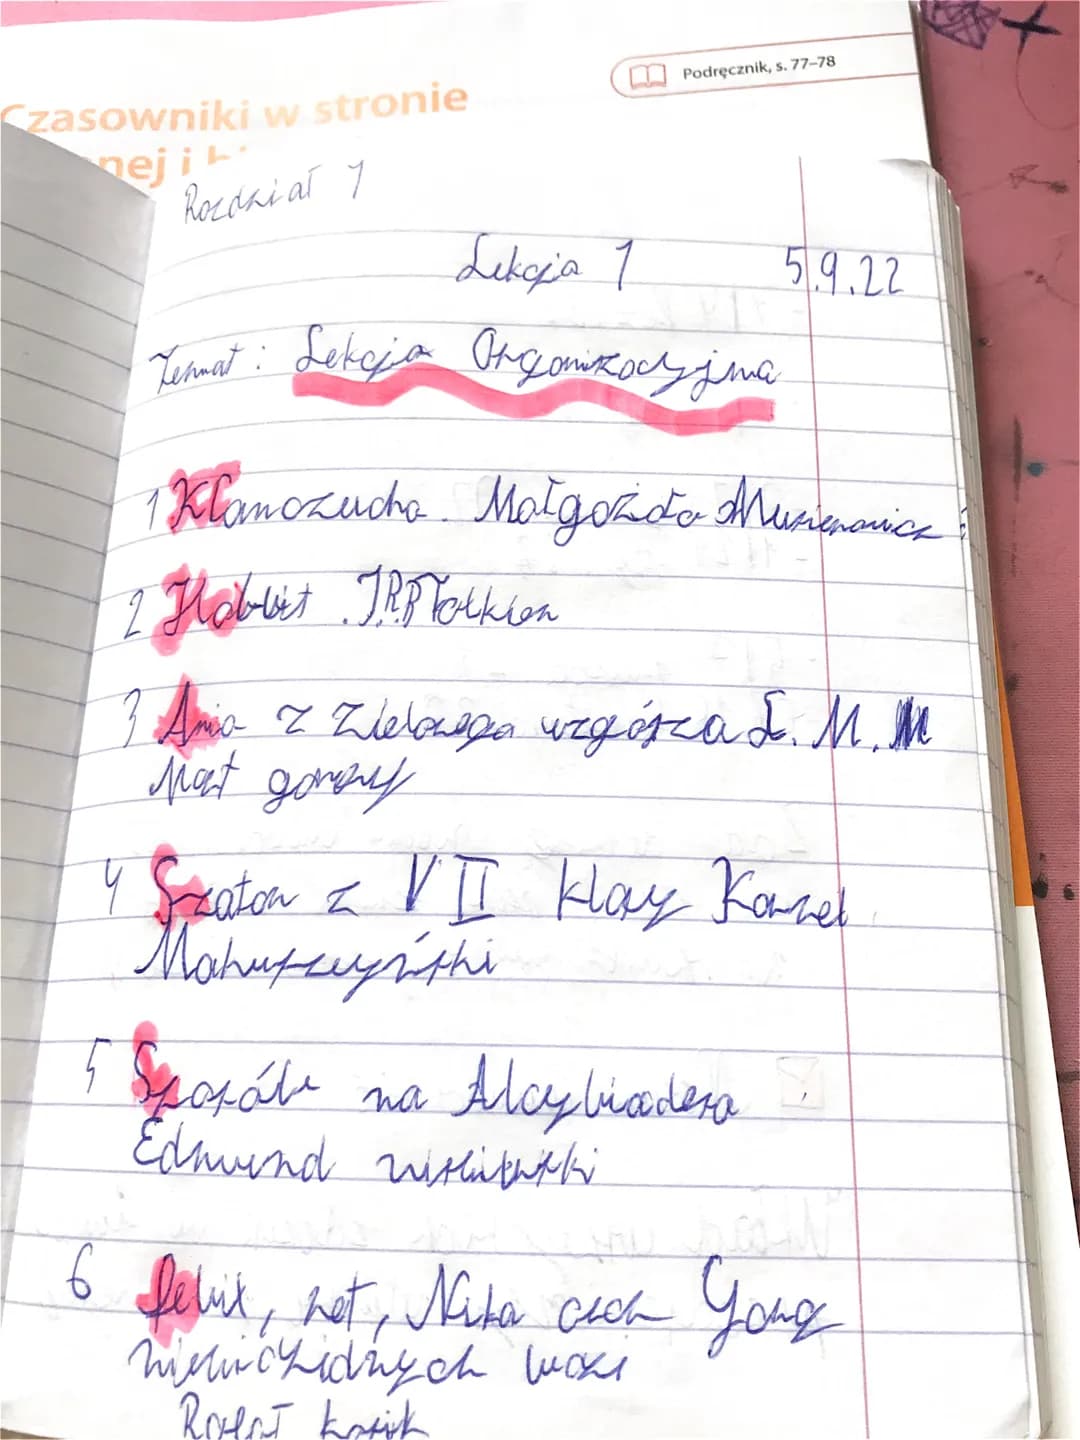 Podręcznik, s. 77–78
Czasowniki w stronie
nej i
Rozdział 1
Lekcja 1 5.9.22
Temat: Lekcja Organizacyjna
1 Kłamczucha. Małgożata Musierowicz
2 Hobbit J.R.R Tolkien
3 Ania z Zielonego wzgórza L. M. M
Mat gomery
4 Szatan z VII klasy Kornel
Makuszyński
5 Sposób na Alcybiadesa
Edmund niziurski
6 felix, net, Nika orch Gang
niewidzialnych
Rafał kosik